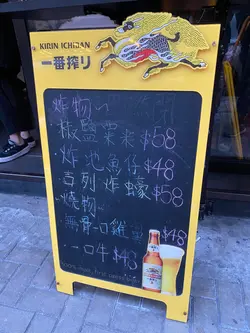 KIRIN ICHIBAN
一番搾り
炸物
椒鹽粟米 $58
炸池魚仔 $48
吉列炸蠔 $58
燒物
無骨一口雞 $48
一口牛 $48